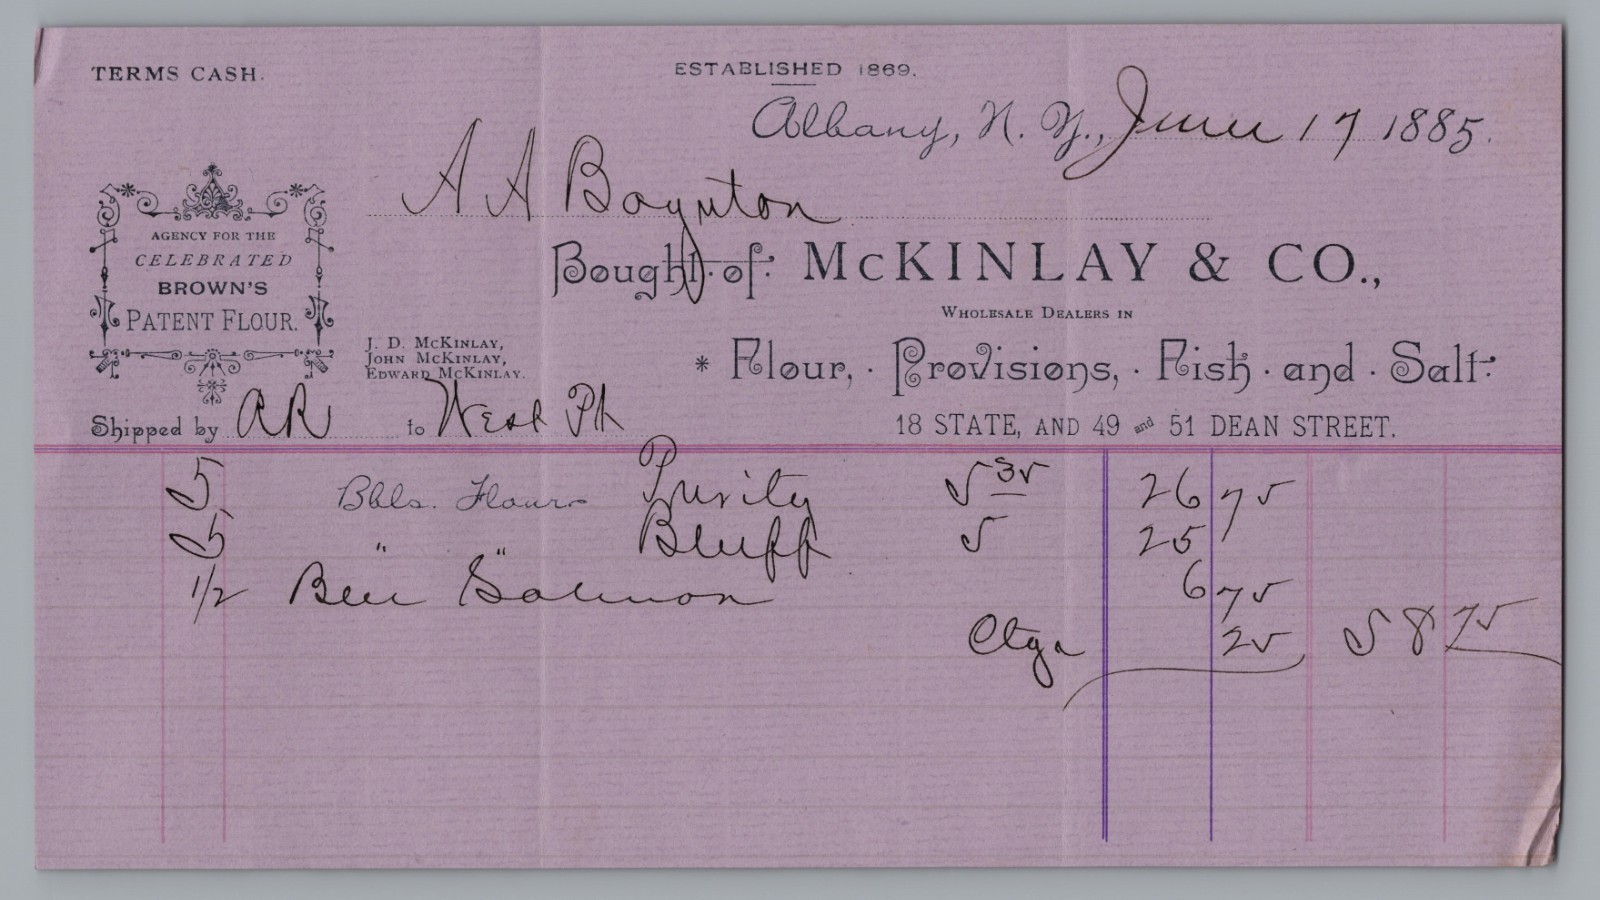 TERMS CASH.
ESTABLISHED 1869.
Albany, N. Y., June 17 1885.
A A Boynton
AGENCY FOR THE
CELEBRATED
BROWN'S
PATENT FLOUR.
Bought of McKINLAY & CO.,
WHOLESALE DEALERS IN
J. D. McKINLAY,
JOHN McKINLAY,
EDWARD McKINLAY.
* Flour, Provisions, Fish and Salt
18 STATE, AND 49 and 51 DEAN STREET.
Shipped by RR to West Pk
5 Bbls. Flour Purity 5 35 26 75
5 " " Bluff 5 25
1/2 Salmon 6 75
Ctga 25 58 75